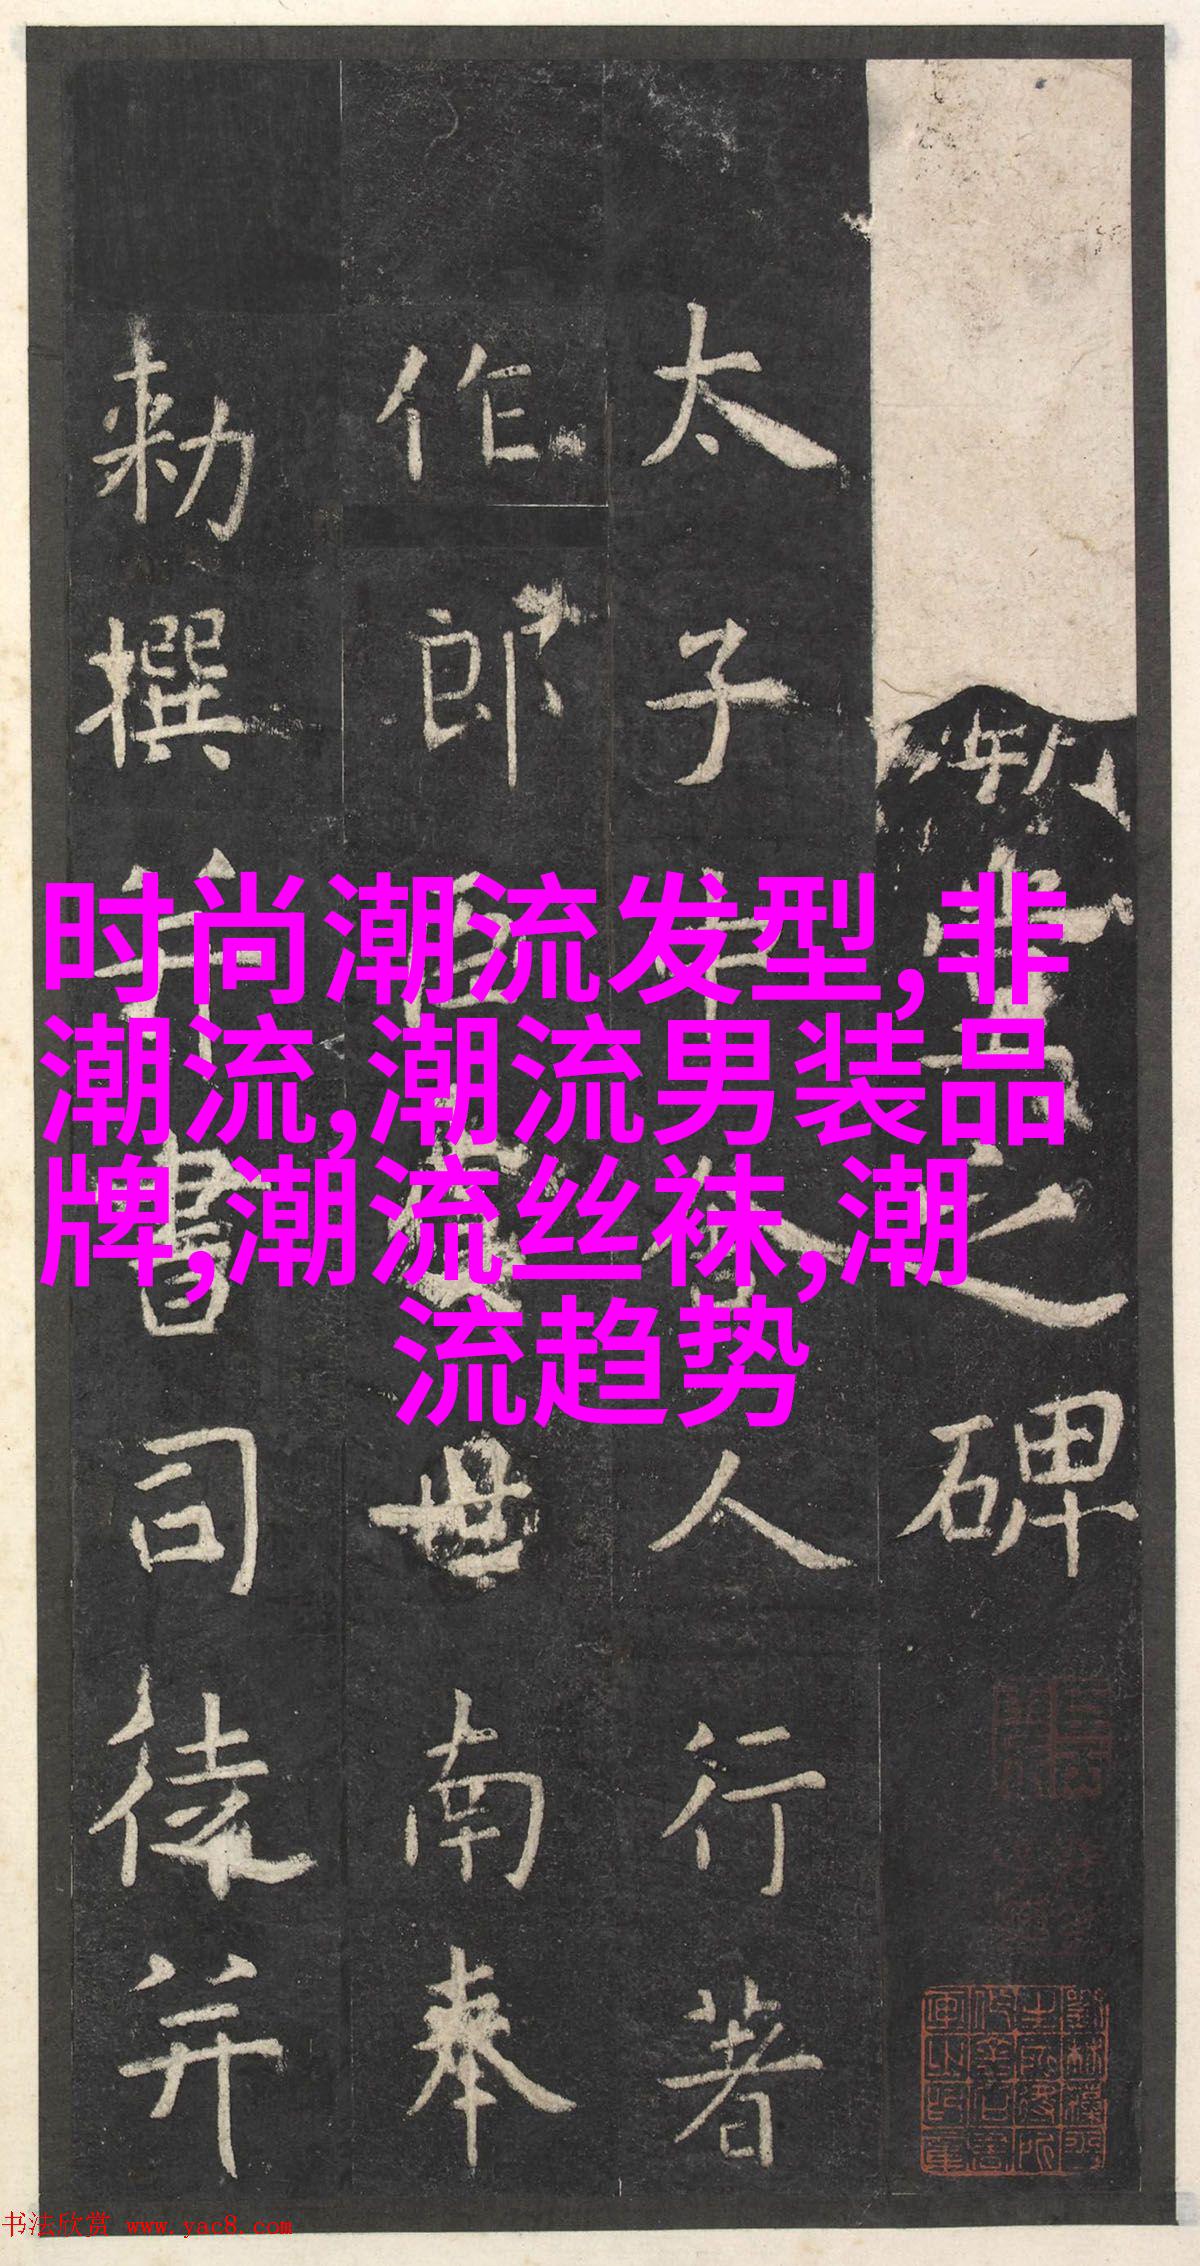 孔子廟堂之碑
太子中舍人行著
作郎臣虞世南奉
勅撰并書司徒并
时尚潮流发型,非
潮流,潮流男装品
牌,潮流丝袜,潮
流趋势
书法欣赏 www.yac8.com